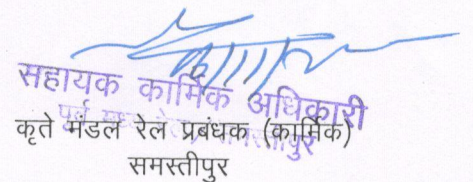 सहायक कार्मिक अधिकारी
पूर्व मध्य रेल, समस्तीपुर
कृते मंडल रेल प्रबंधक (कार्मिक)
समस्तीपुर